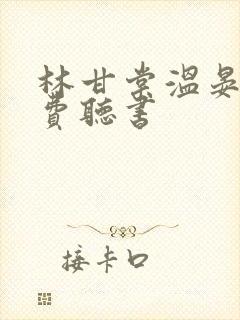 林甘棠溫晏
費聽書
接卡口